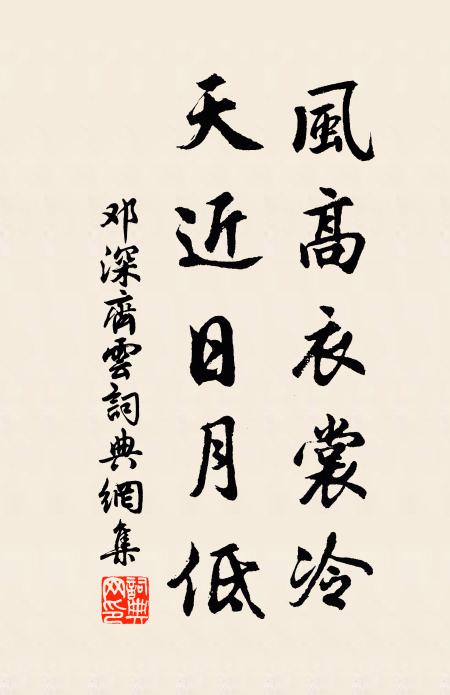 風高衣裳冷
天近日月低
邓深齊雲詞典網集
詞典網印